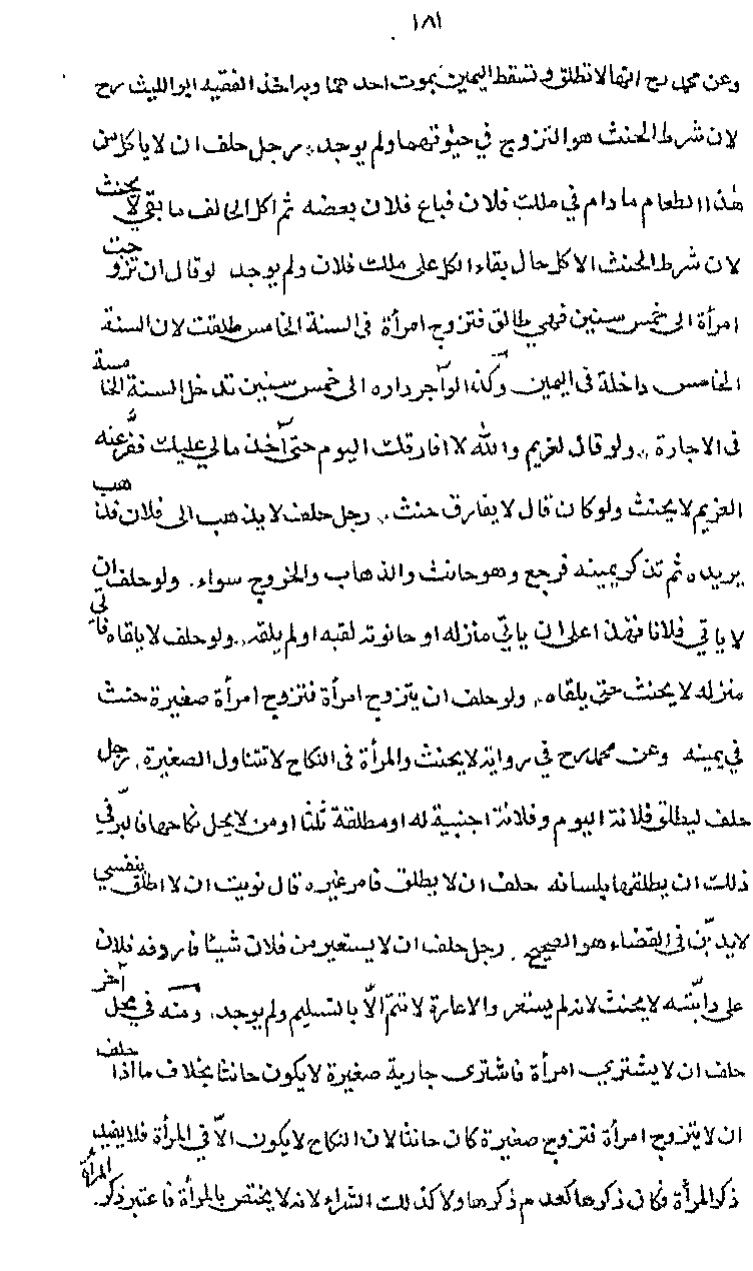 ١٨١
وعن محمد رح انها لا تطلق وتسقط اليمين بموت احدهما وبه اخذ الفقيه ابو الليث رح
لان شرط الحنث هو التزوج في حيوتهما ولم يوجد ∴ رجل حلف ان لا ياكل من
هذا الطعام ما دام في ملك فلان فباع فلان بعضه ثم اكل الحالف ما بقي لا يحنث
لان شرط الحنث الاكل حال بقاء الكل على ملك فلان ولم يوجد لو قال ان تزوجت
امرأة الى خمس سنين فهي طالق فتزوج امرأة فى السنة الخامس طلقت لان السنة
الخامس داخلة فى اليمين وكذا لو آجر داره الى خمس سنين تدخل السنة الخامسة
فى الاجارة ∴ ولو قال لغريم والله لا افارقك اليوم حتى آخذ مالي عليك ففرّ عنه
الغريم لا يحنث ولو كان قال لا يفارق حنث ∴ رجل حلف لا يذهب الى فلان فذهب
يريده ثم تذكر يمينه فرجع وهو حانث والذهاب والخروج سواء . ولو حلف ان
لا ياتي فلانا فهذا على ان ياتي منزله او حانوته لقيه او لم يلقه ∴ ولو حلف لا يلقاه فاتي
منزله لا يحنث حتى يلقاه ∴ ولو حلف ان يتزوج امرأة فتزوج امرأة صغيرة حنث
في يمينه وعن محمد رح في رواية لا يحنث والمرأة فى النكاح لا تتناول الصغيرة . رجل
حلف ليطلق فلانة اليوم وفلانة اجنبية له او مطلقة ثلثا او من لا يحل نكاحها فالبرّ في
ذلك ان يطلقها بلسانه حلف ان لا يطلق فامر غيره قال نويت ان لا اطلق بنفسي
لا يديّن فى القضاء هو الصحيح . رجل حلف ان لا يستعير من فلان شيئا فاردفه فلان
على دابّته لا يحنث لانه لم يستعر والاعارة لا تتمّ الاّ بالتسليم ولم يوجد . ومنه في محل آخر
حلف ان لا يشتري امرأة فاشترى جارية صغيرة لا يكون حانثا بخلاف ما اذا حلف
ان لا يتزوج امرأة فتزوج صغيرة كان حانثا لان النكاح لا يكون الاّ في المرأة فلا يفيد
ذكر المرأة فكان ذكرها كعدم ذكرها ولا كذلك الشراء لانه لا يختص بالمرأة فاعتبر ذكر المرأة.